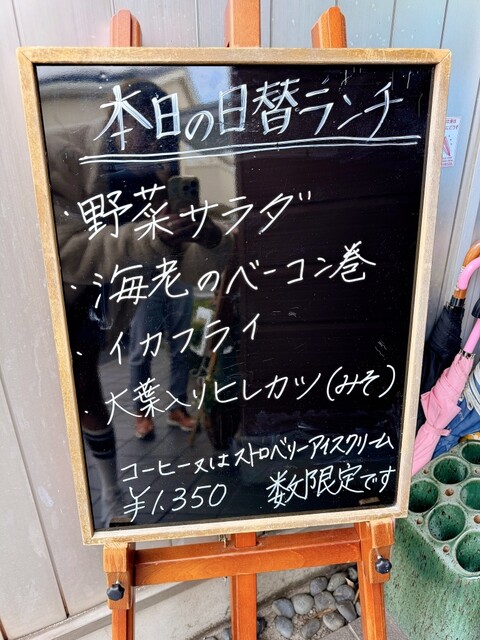 本日の日替ランチ
・野菜サラダ
・海老のベーコン巻
・イカフライ
・大葉入りヒレカツ(みそ)
コーヒー又はストロベリーアイスクリーム
¥1.350 数限定です